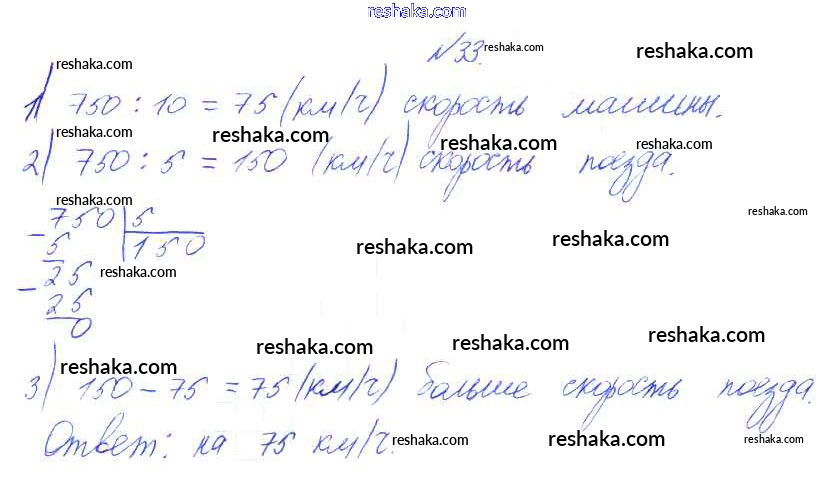 reshaka.com
№33. reshaka.com reshaka.com
reshaka.com
1) 750 : 10 = 75 (км/ч) скорость машины.
reshaka.com reshaka.com reshaka.com reshaka.com
2) 750 : 5 = 150 (км/ч) скорость поезда.
reshaka.com
- 750 | 5
reshaka.com
5 150
reshaka.com reshaka.com
- 25 reshaka.com
25
0
reshaka.com reshaka.com reshaka.com
reshaka.com
3) 150 - 75 = 75 (км/ч) больше скорость поезда.
Ответ: на 75 км/ч.
reshaka.com reshaka.com reshaka.com